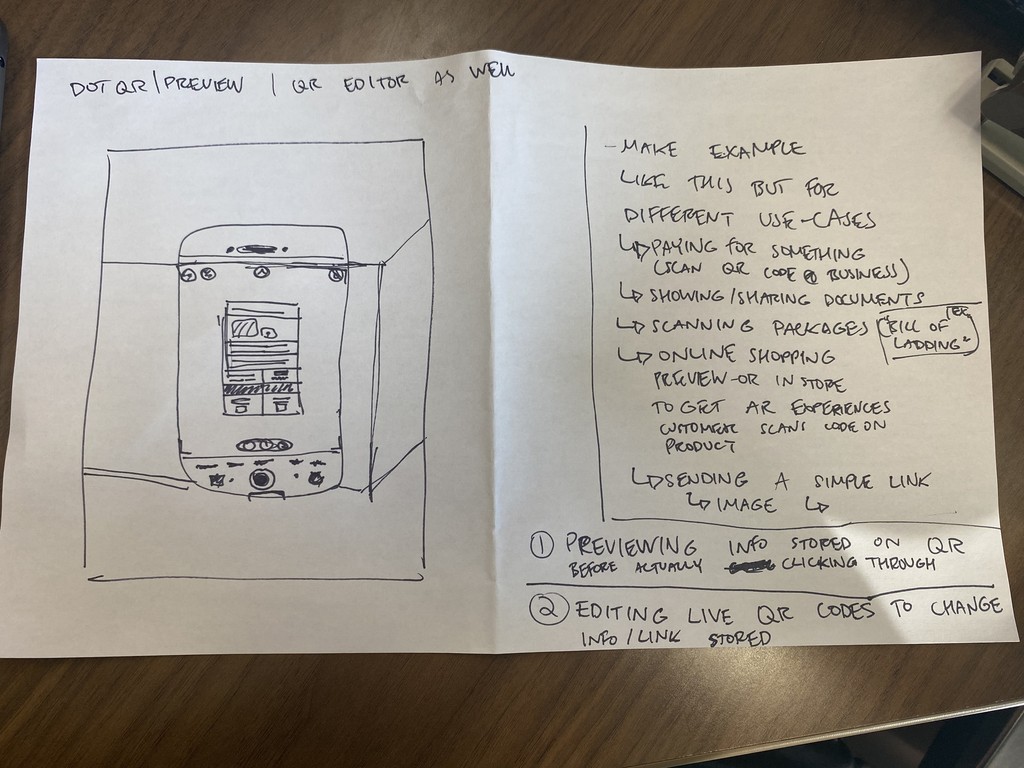 DOT QR/PREVIEW / QR EDITOR AS WELL
- MAKE EXAMPLE
LIKE THIS BUT FOR
DIFFERENT USE-CASES
↳ PAYING FOR SOMETHING
(SCAN QR CODE @ BUSINESS)
↳ SHOWING/SHARING DOCUMENTS
↳ SCANNING PACKAGES
"BILL OF
LADDING"
↳ ONLINE SHOPPING
PREVIEW-OR IN STORE
TO GET AR EXPERIENCES
CUSTOMER SCANS CODE ON
PRODUCT
↳ SENDING A SIMPLE LINK
↳ IMAGE ↳
① PREVIEWING INFO STORED ON QR
BEFORE ACTUALLY CLICKING THROUGH
② EDITING LIVE QR CODES TO CHANGE
INFO/LINK STORED